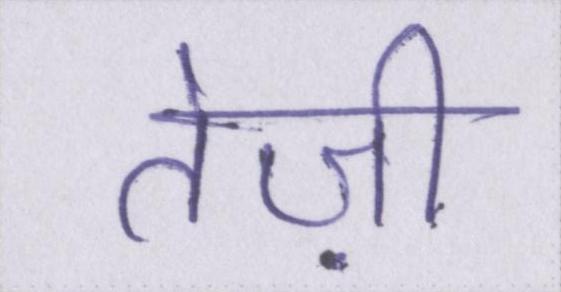 तेज़ी